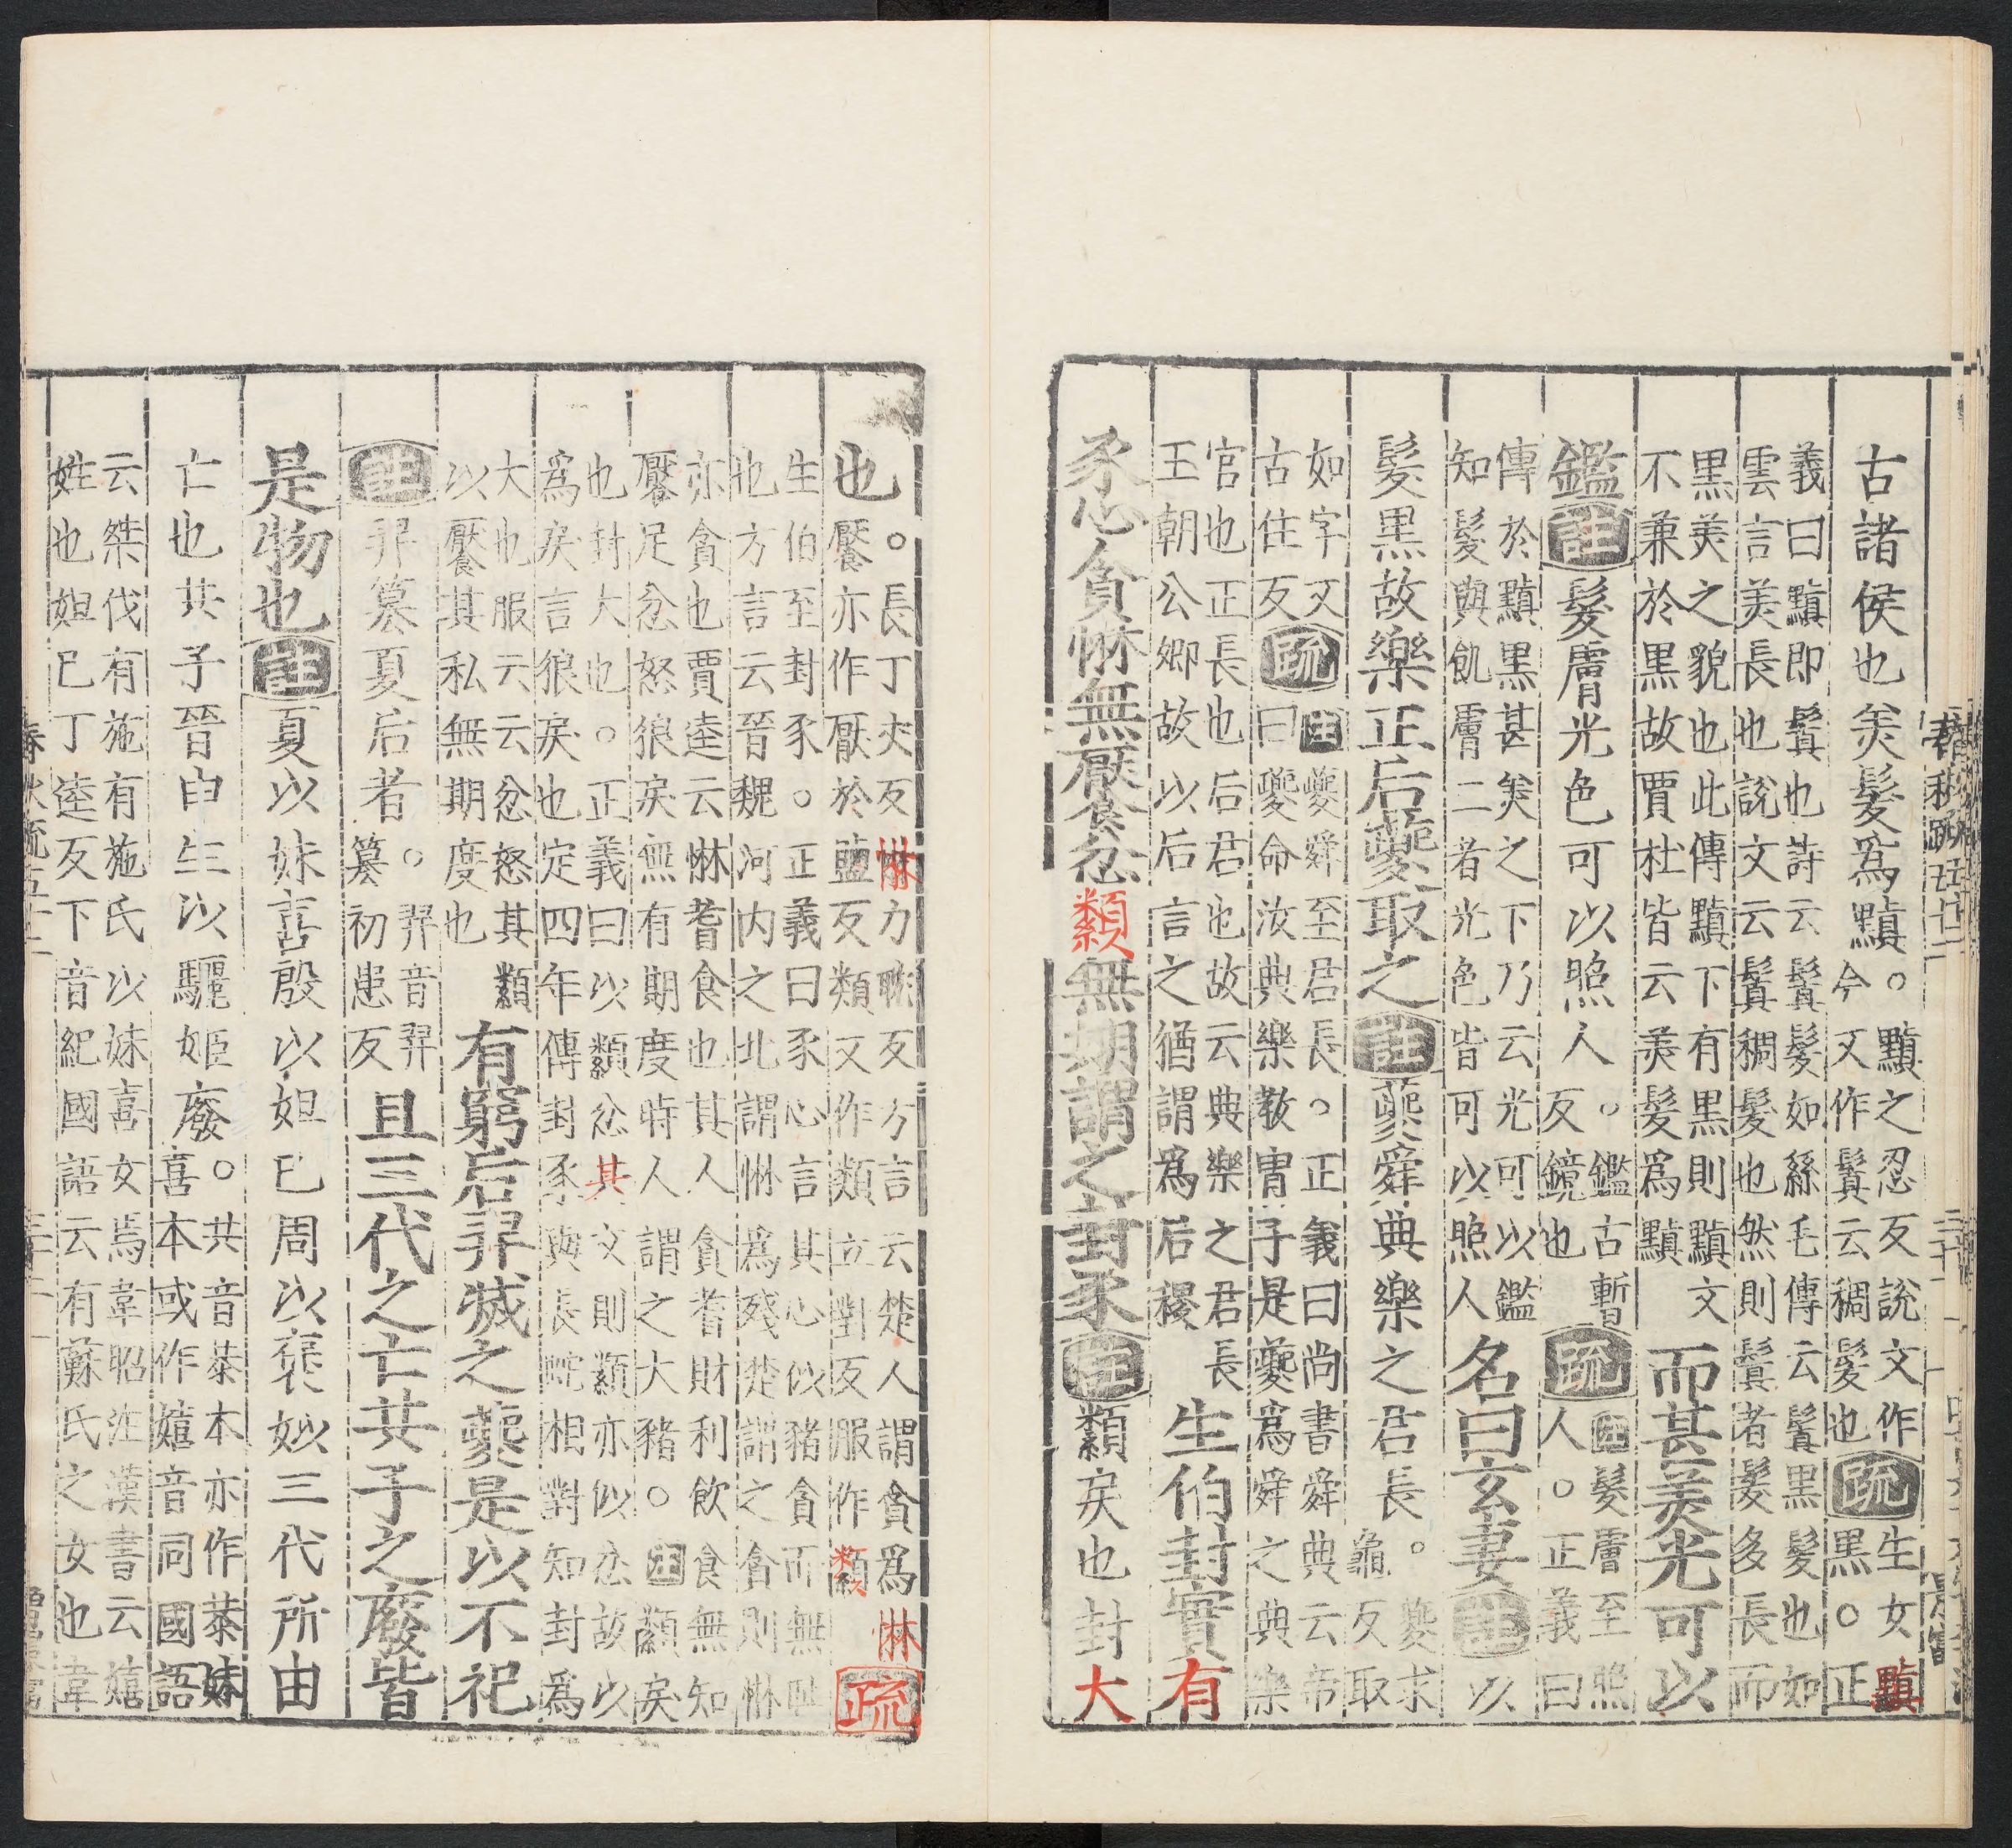 古諸侯也美髮爲黰。黰之忍反說文作
今又作鬒云稠髮也疏生女黰
黑。正
義曰黰即鬒也詩云鬒髮如絲毛傳云鬒黑髮也如
雲言美長也說文云鬒稠髮也然則鬒者髮多長而
黑美之貌也此傳黰下有黑則黰文
不兼於黑故賈杜皆云美髮爲黰而甚美光可以
鑑註髮膚光色可以照人。鑑古暫
反鏡也疏註髮膚至照
人。正義曰
傳於黰黑甚美之下乃云光可以鑑
知髮與飢膚二者光色皆可以照人名曰玄妻註以
髮黑故樂正后夔取之註夔舜典樂之君長。夔求
龜反取
如字又
古住反疏註夔舜至君長。正義曰尚書舜典云帝
曰夔命汝典樂敎胄子是夔爲舜之典樂
官也正長也后君也故云典樂之君長
王朝公卿故以后言之猶謂爲后稷生伯封實有
豕心貪惏無饜忿纇無期謂之封豕註纇戾也封大
也。長丁丈反惏力躭反方言云楚人謂貪爲惏
饜亦作厭於鹽反類又作類立對反服作纇疏
生伯至封豕。正義曰豕心言其心似豬貪而無恥
也方言云晉魏河内之北謂惏爲殘楚謂之貪則惏
亦貪也賈逵云惏耆食也其人貪耆財利飲食無知
饜足忿怒狼戾無有期度時人謂之大豬。註纇戾
也封大也。正義曰以纇忿其文則纇亦似忿故以
爲戾言狼戾也定四年傳封豕與長蛇相對知封爲
大也服云云忿怒其纇
以饜其私無期度也有窮后羿滅之夔是以不祀
註羿篡夏后者。羿音羿
篡初患反且三代之亡共子之廢皆
是物也註夏以妹喜殷以妲己周以襃姒三代所由
亡也共子晉申生以驪姬廢。共音恭本亦作恭妹
喜本或作嬉音同國語
云桀伐有施有施氏以妹喜女焉韋昭注漢書云嬉
姓也妲己丁逵反下音紀國語云有蘇氏之女也韋